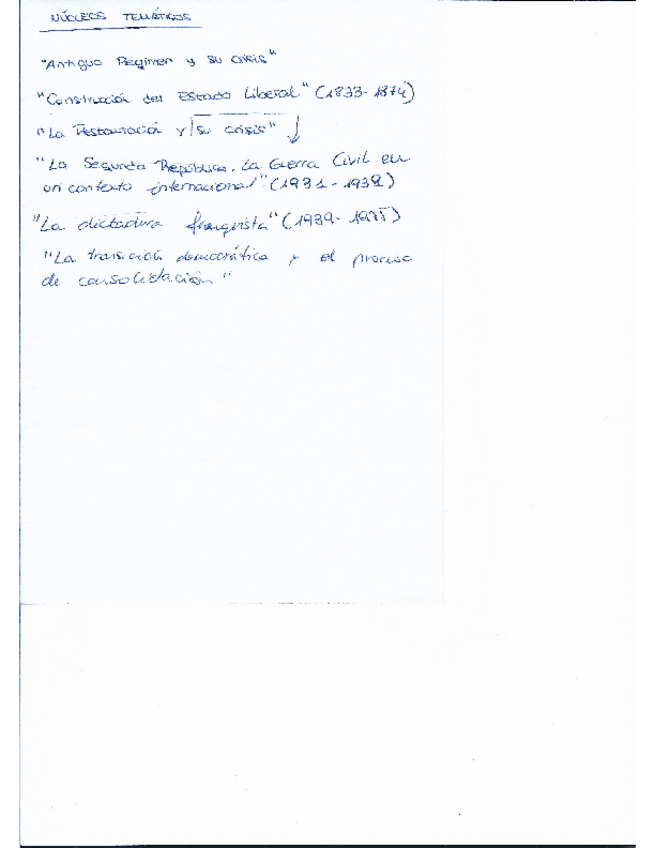 NÚCLEOS TEMÁTICOS
"Antiguo Régimen y su crisis"
"Construcción del Estado Liberal" (1833-1874)
"La Restauración y su crisis" ↓
"La Segunda República. La Guerra Civil en
un contexto internacional" (1931-1939)
"La dictadura franquista" (1939-1975)
"La transición democrática y el proceso
de consolidación"